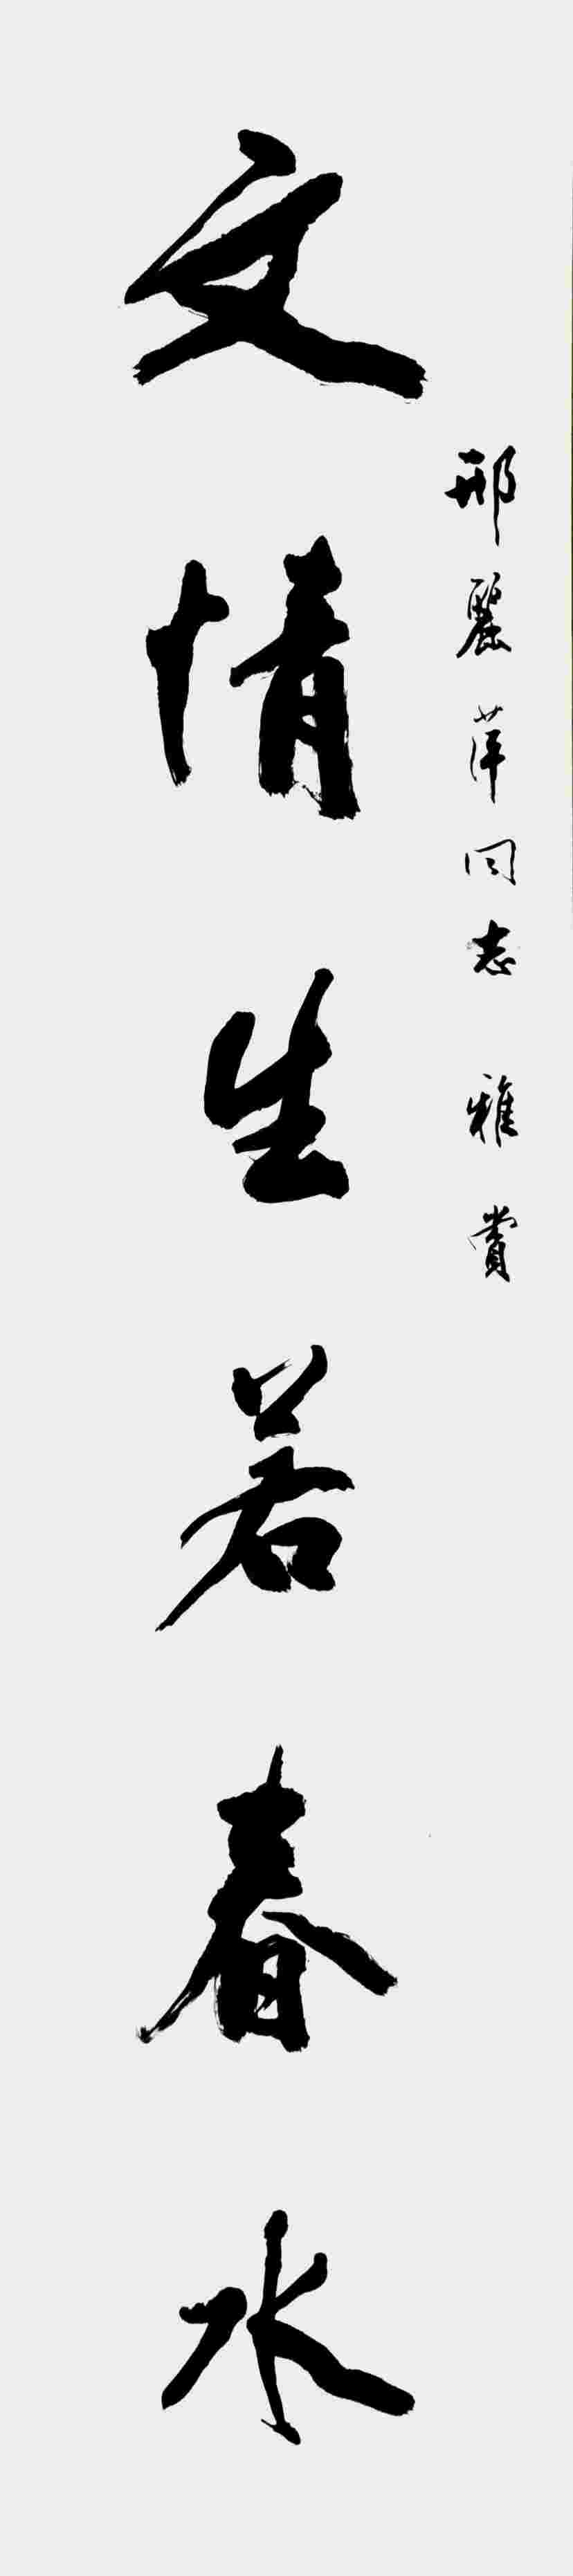 邢麗萍同志 雅賞
文情生若春水